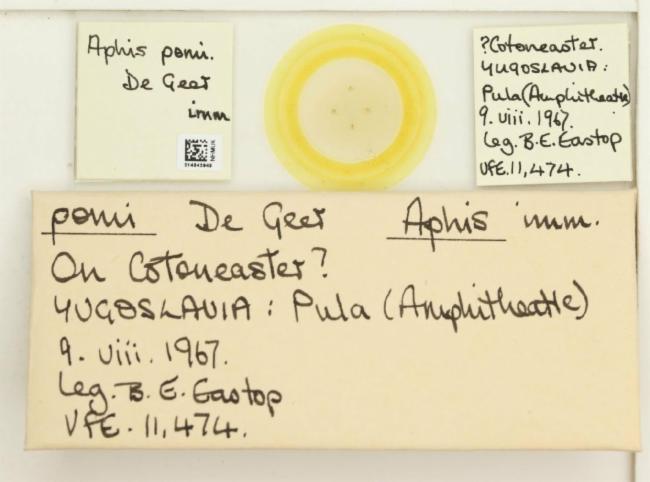 Aphis pomi.
De Geer
imm
NHMUK
?Cotoneaster.
YUGOSLAVIA:
Pula (Amphitheatre)
9. viii. 1967.
leg. B.E. Eastop
VFE. 11,474.
pomi De Geer Aphis imm.
On Cotoneaster?
YUGOSLAVIA: Pula (Amphitheatre)
9. viii. 1967.
Leg. B. E. Eastop
VFE. 11,474.